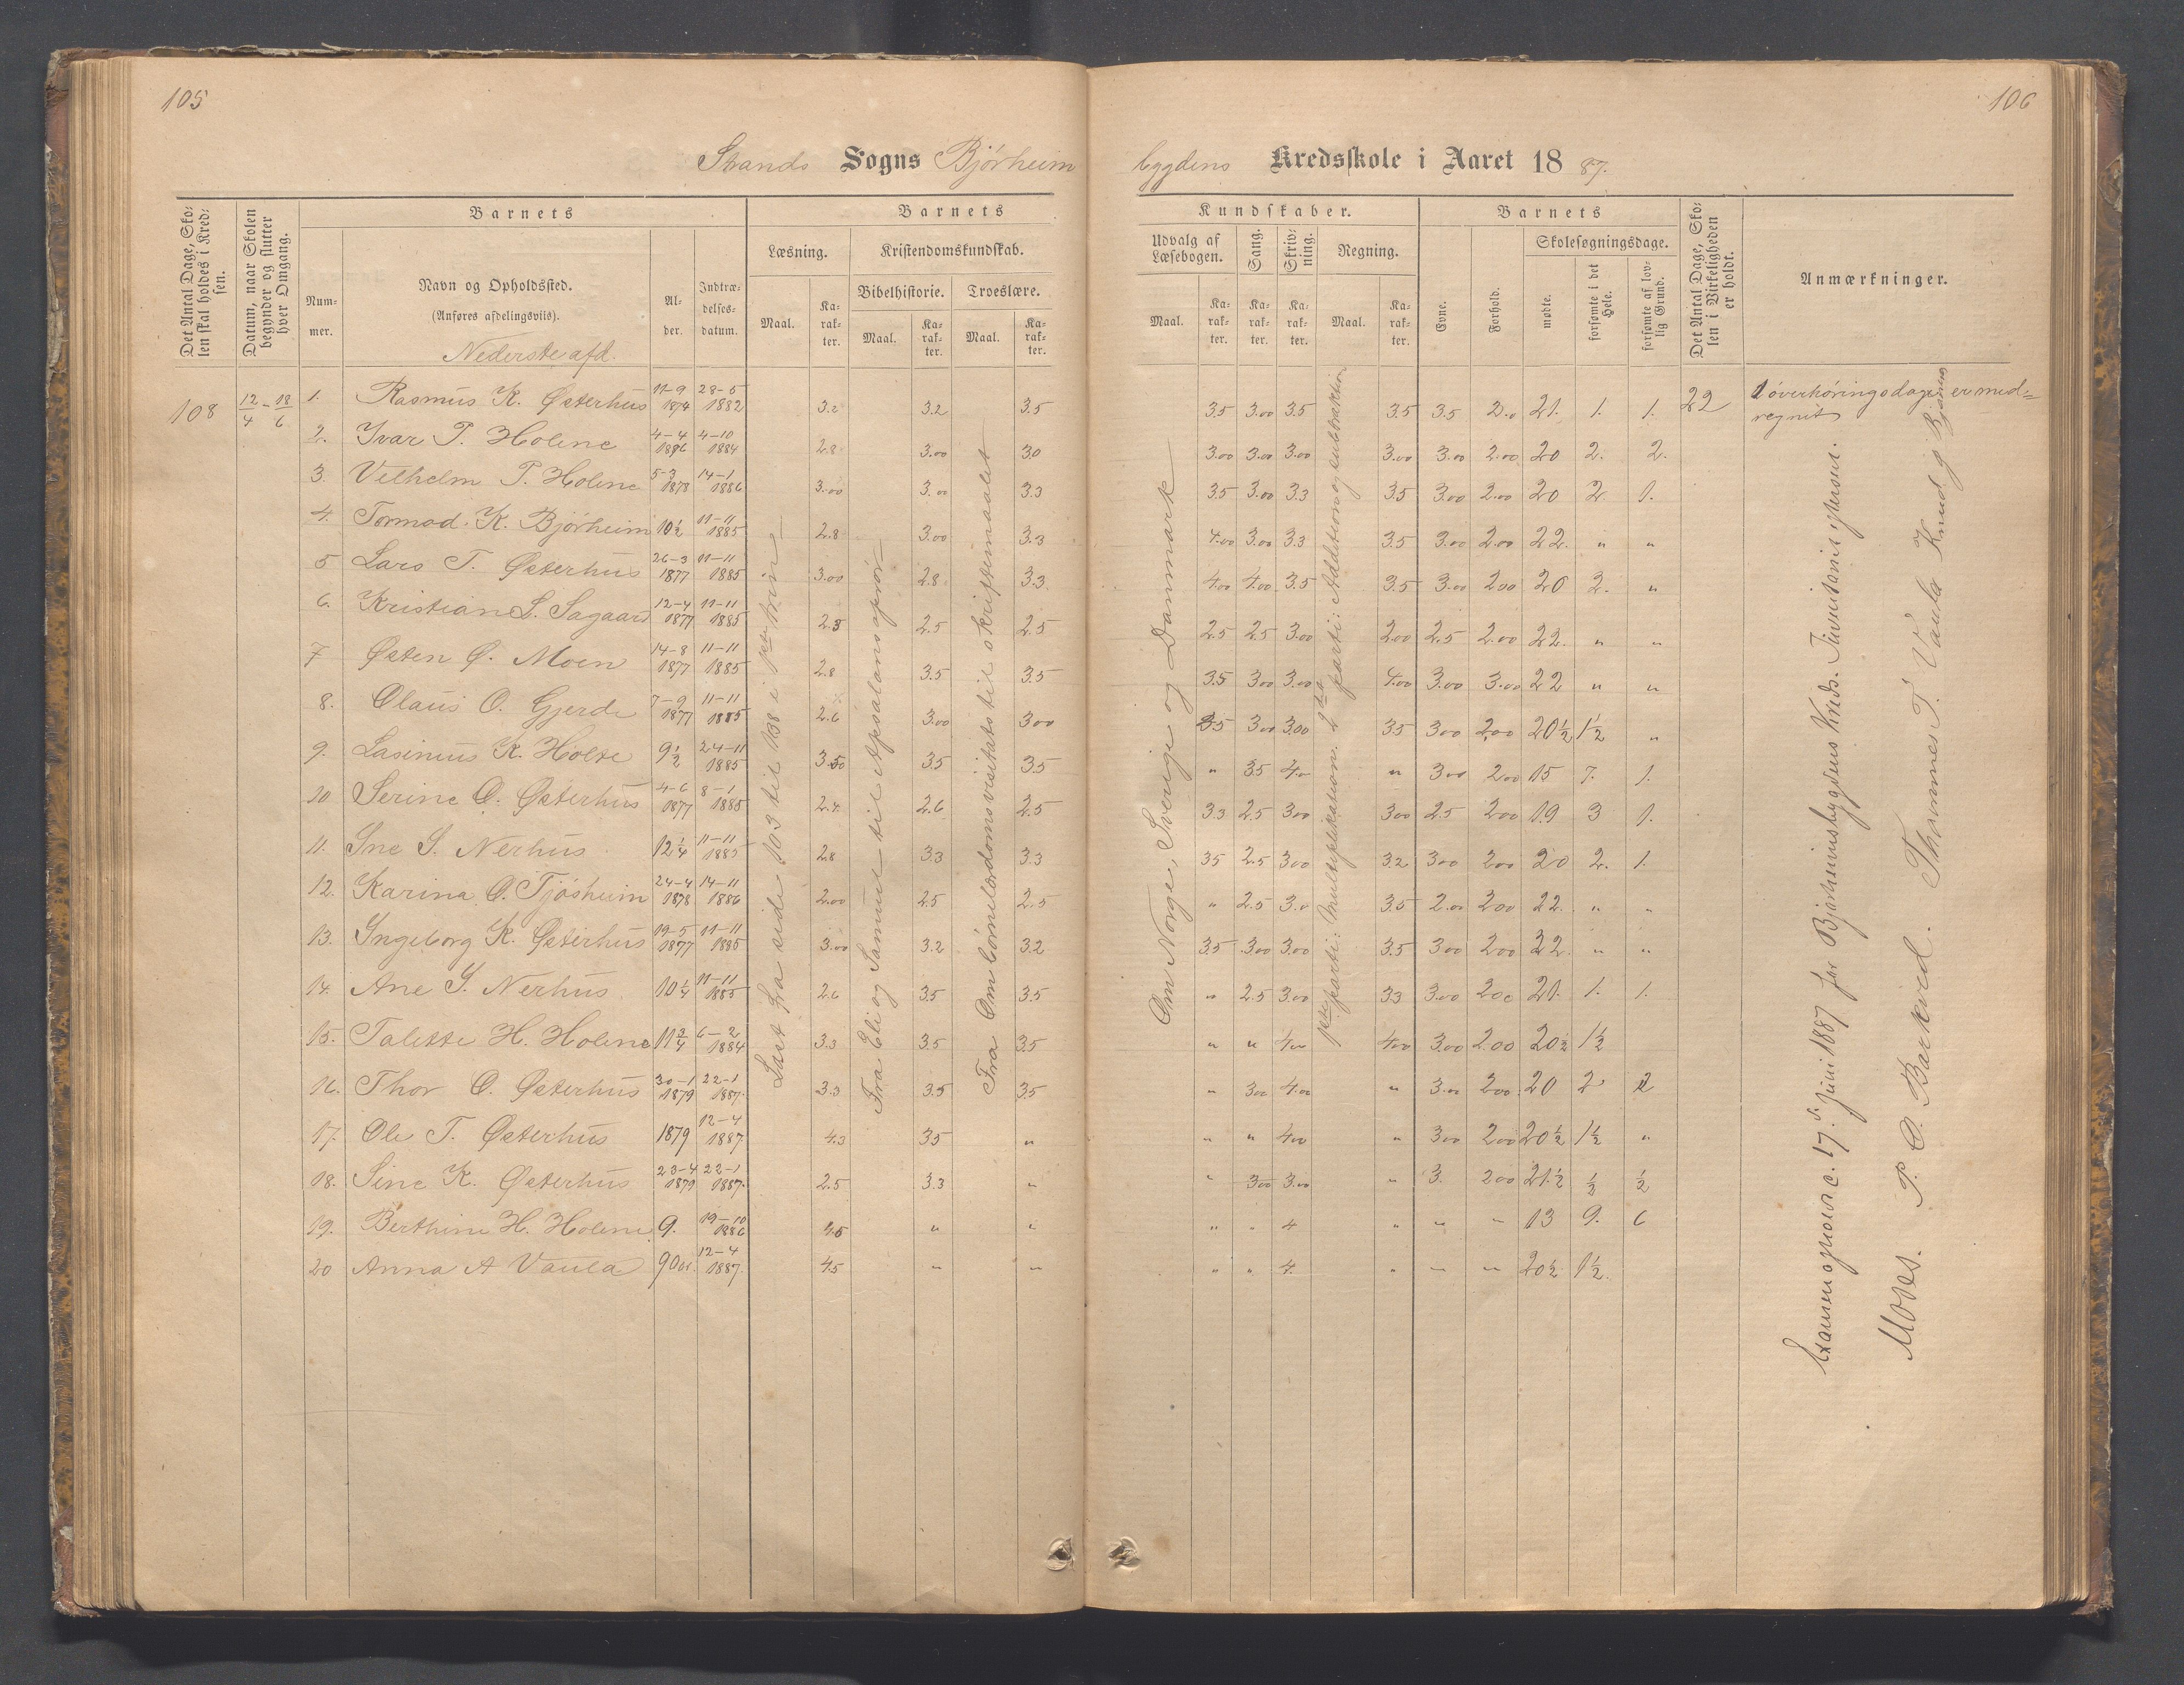 105
106
Strands Sogns Bjørheim
bygdens Kredsskole i Aaret 1887.
Det Antal Dage, Skolen skal holdes i Kredsen.
Datum, naar Skolen begynder og slutter hver Omgang.
Barnets
Nummer.
Navn og Opholdssted.
(Anføres afdelingsviis).
Nederste afd.
Alder.
Indtrædelsesdatum.
Barnets
Læsning.
Maal.
Karakter.
Kristendomskundskab.
Bibelhistorie.
Maal.
Karakter.
Troeslære.
Maal.
Karakter.
Kundskaber.
Udvalg af Læsebogen.
Maal.
Karakter.
Sang.
Karakter.
Skrivning.
Karakter.
Regning.
Maal.
Karakter.
Barnets
Evne.
Forhold.
Skolesøgningsdage.
mødte.
forsømte i det Hele.
forsømte af lovlig Grund.
Det Antal Dage, Skolen i Virkeligheden er holdt.
Anmærkninger.
108 12/4 - 18/6 1. Rasmus K. Østerhus 11-9 1874 28-5 1882 3.2 3.2 3.5 3.5 3.00 3.5 3.5 3.5 2.0 21. 1. 1. 22 1 overhøringsdag er med=
regnet
2. Ivar T. Holene 4-4 1876 4-10 1884 2.8 3.00 3.0 3.00 3.00 3.00 3.00 3.00 2.00 20 2. 2.
3. Velhelm T. Holene 5-3 1878 14-1 1886 3.00 3.00 3.3 3.5 3.00 3.3 3.5 3.00 2.00 20 2 1.
4. Tormod K. Bjørheim 10½ 11-11 1885 2.8 3.00 3.3 4.00 3.00 3.3 3.5 3.00 2.00 22. " "
5 Lars T. Østerhus 26-3 1877 11-11 1885 3.00 2.8 3.3 4.00 4.00 3.5 3.5 3.00 2.00 20 2. "
6. Kristian S. Sagaard 12-4 1877 11-11 1885 2.5 2.5 2.5 2.5 2.5 3.00 2.00 2.5 2.00 22. " "
7 Østen Ø. Moen 14-8 1877 11-11 1885 2.8 3.5 3.5 3.5 3.00 3.00 4.00 3.00 3.00 22 " "
8. Olaus O. Gjerde 7-9 1877 11-11 1885 2.6 3.00 3.00 3.5 3.00 3.00 3.5 3.00 2.00 20½ 1½ "
9. Lasinius K. Holte 9½ 24-11 1885 3.50 3.5 3.5 " 3.5 4.00 " 3.00 2.00 15 7. 1.
10 Serine O. Østerhus 4-6 1877 8-1 1885 2.4 2.6 2.5 3.3 2.5 3.00 3.00 2.5 2.00 19 3 1.
11. Ine S. Nerhus 12¼ 11-11 1885 2.8 3.3 3.3 3.5 2.5 3.00 3.2 3.00 2.00 20 2. 1.
12. Karina O. Tjøsheim 24-4 1878 14-11 1886 2.00 2.5 2.5 " 2.5 3.0 3.5 2.00 2.00 22. " "
13. Ingeborg K. Østerhus 19-5 1877 11-11 1885 3.00 3.2 3.2 3.5 3.00 3.00 3.5 3.00 2.00 22. " "
14. Ane S. Nerhus 10¼ 11-11 1885 2.6 3.5 3.5 " 2.5 3.00 3.3 3.00 2.00 21. 1. 1.
15. Talette H. Holene 11¾ 6-2 1884 3.3 3.5 3.5 " " 4.00 4.00 3.00 2.00 20½ 1½
16. Thor O. Østerhus 30-1 1879 22-1 1887. 3.3 3.5 3.5 " 3.00 4.00 " 3.00 2.00 20 2 2
17. Ole T. Østerhus 1879 12-4 1887 4.3 3.5 " " " 4.00 " 3.00 2.00 20½ 1½ "
18. Sine K. Østerhus 23-4 1879 22-1 1887. 2.5 3.3 " " 3.00 3.00 " 3. 2.00 21½ ½ ½
19. Berthine H. Holene 9. 19-10 1886 4.5 " " " " 4 " " " 13 9. 6
20 Anna A Vaula 9 aar. 12-4 1887. 4.5 " " " " 4. " " " 20½ 1½.
Læst fra side 103 til 138 i 1ste trin
Fra Eli og Samuel til Absalons oprør
Fra Om børnelærdoms visitats til skriftemaalet
Om Norge, Sverige og Danmark
1ste parti: Multiplikation. 2det parti: Addition og subtraktion
Examen optoges d. 17. juni 1887 for Bjørheimsbygdens Kreds.
Moses. P. O. Barkved. Thormes T. Vaula Knud